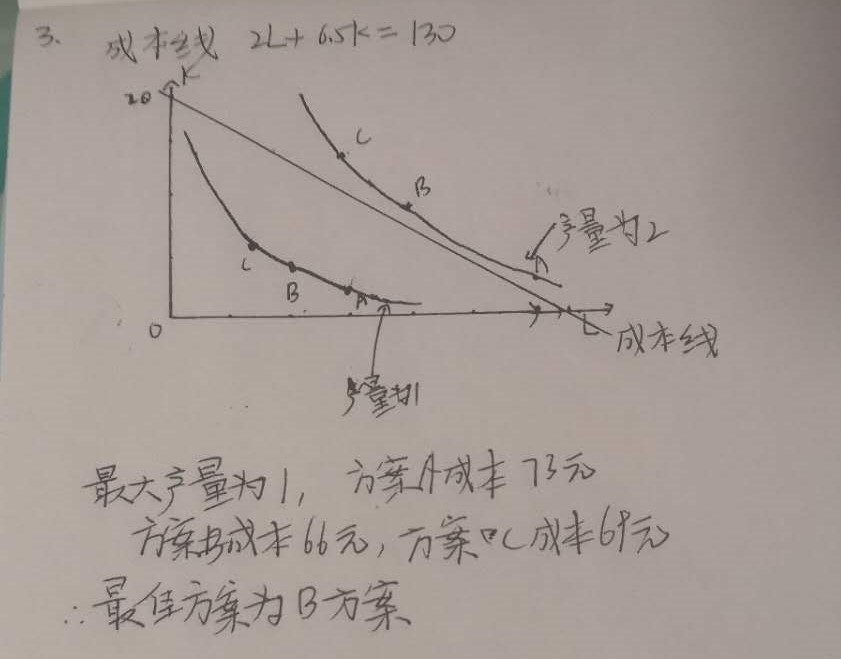 3. 成本线 2L+6.5K=130
K
20
C
B
产量为2
A
C
B
A
O
L
成本线
产量为1
最大产量为1, 方案A成本73元
方案B成本66元, 方案C成本69元
∴最佳方案为B方案